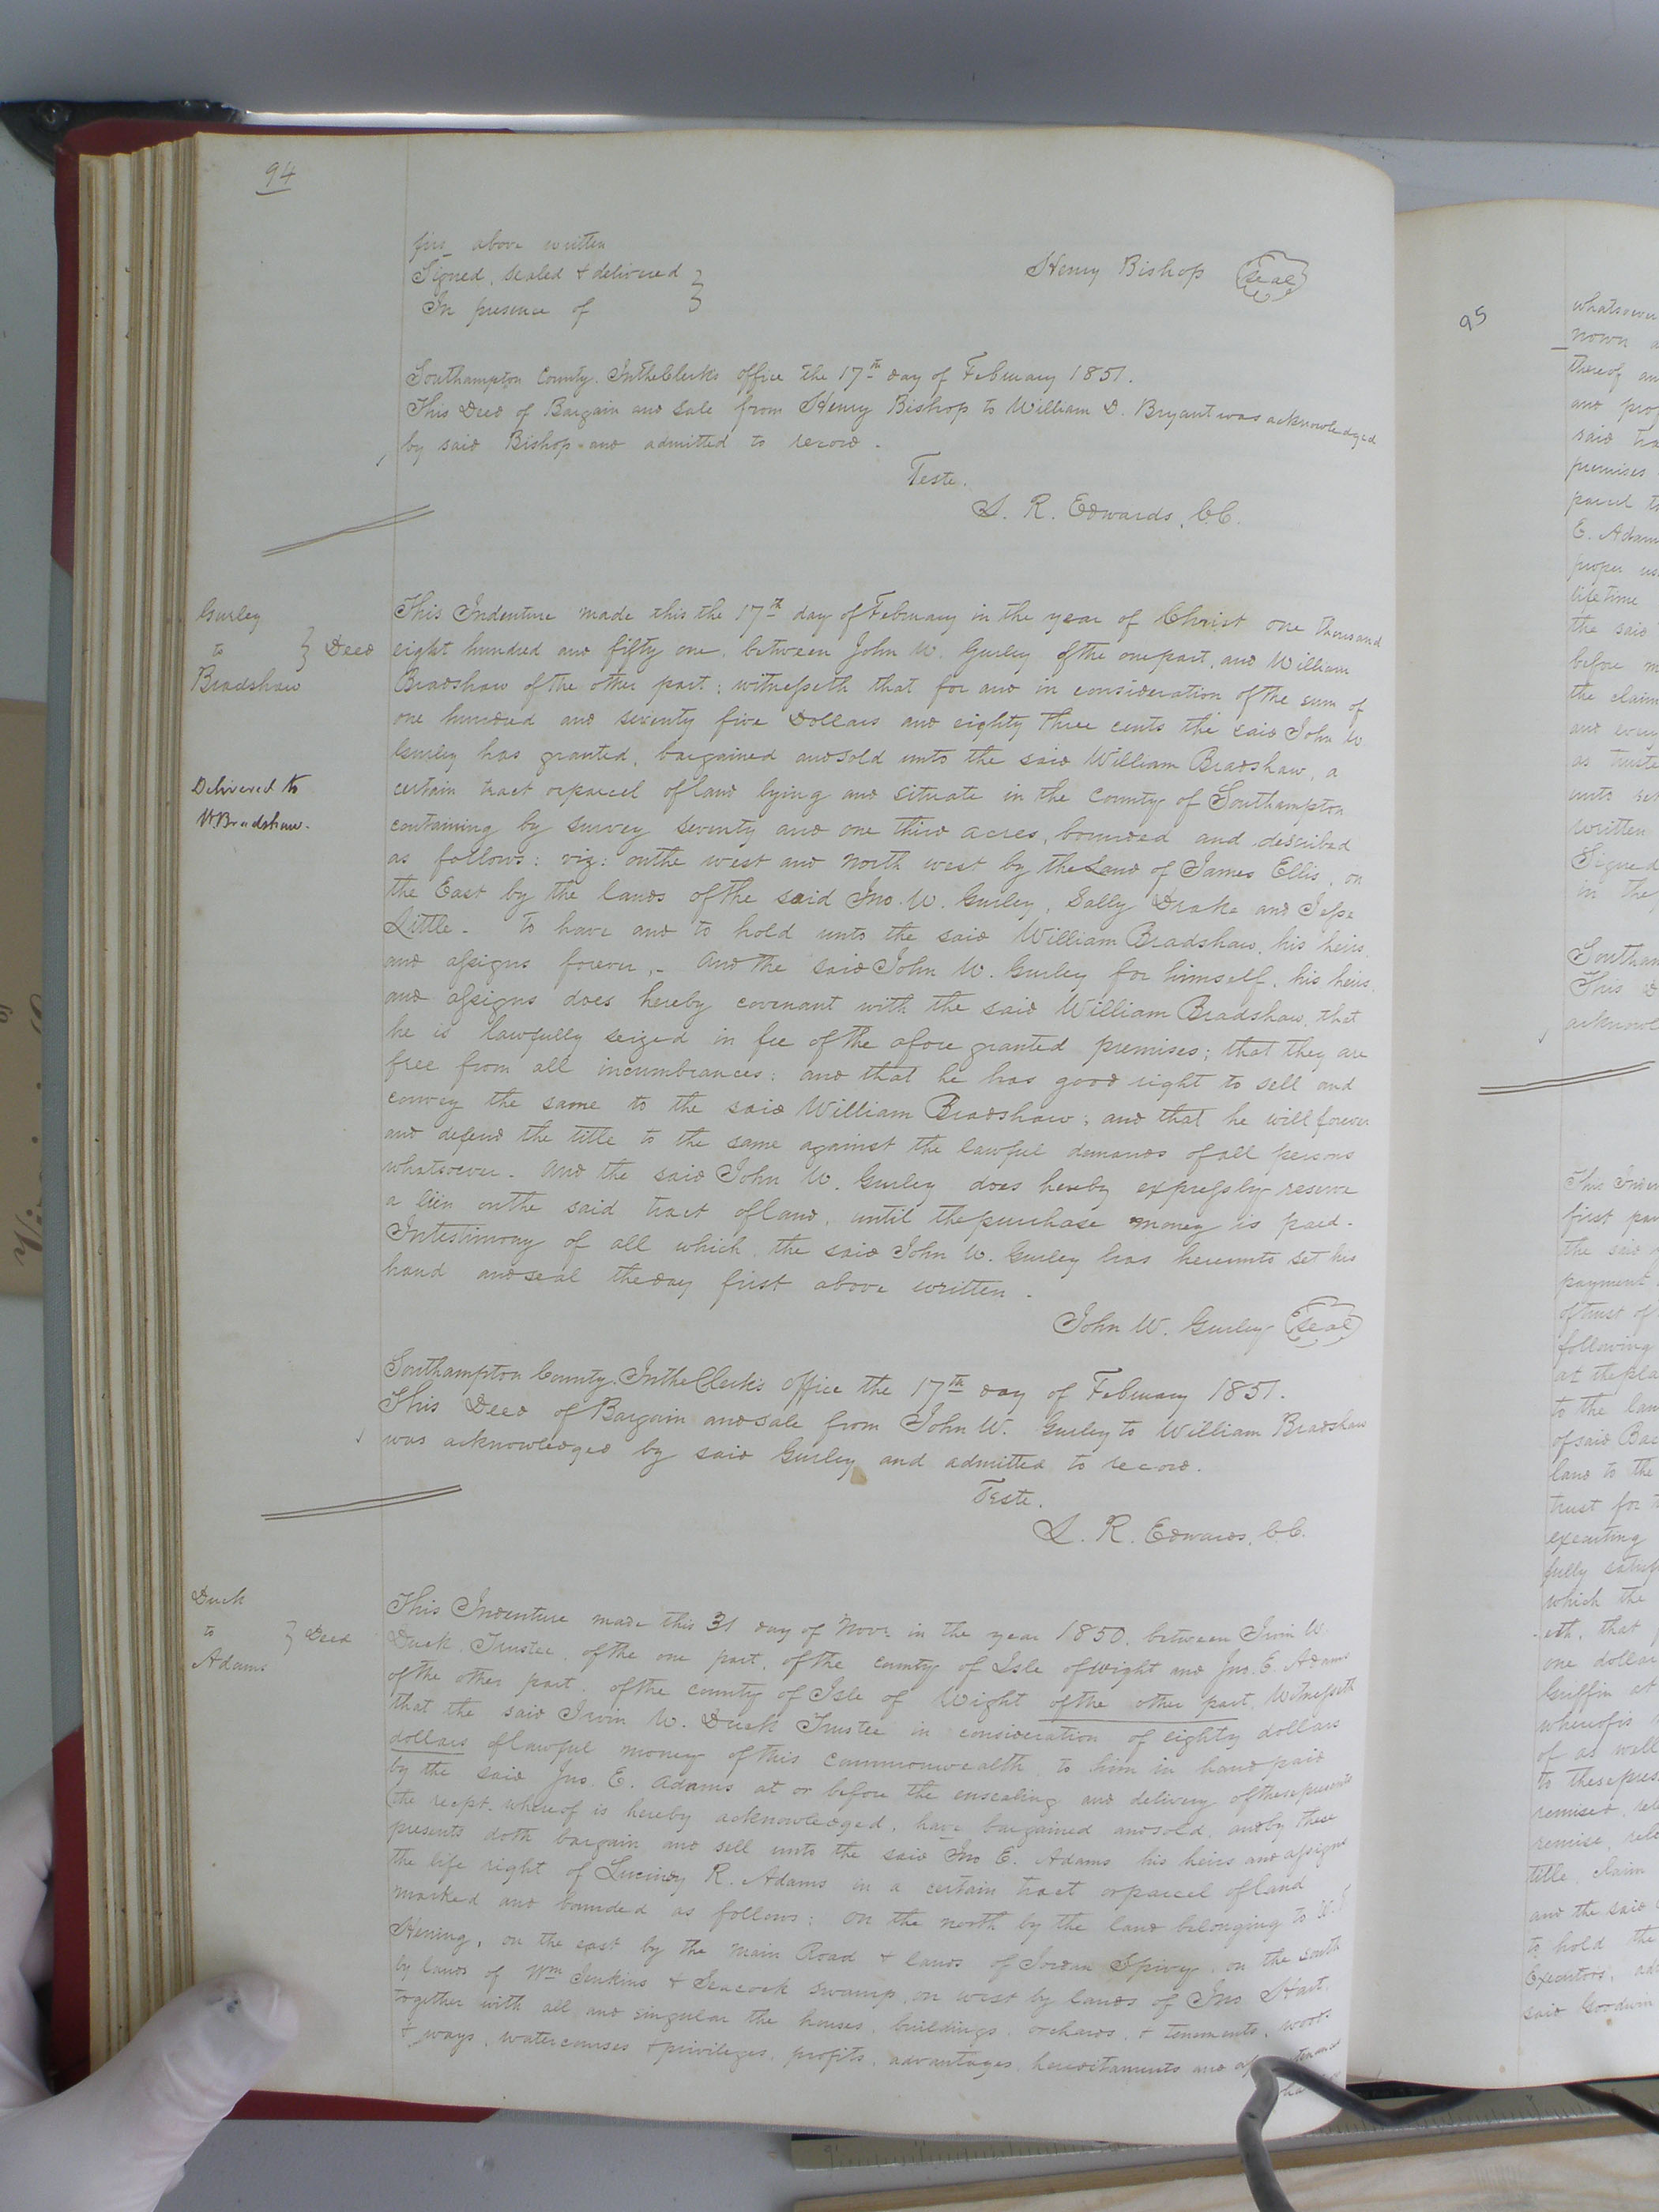 94
firs above written
Signed, sealed & delivered }
In presence of
Henry Bishop Seal
Southampton County. In the Clerks office the 17th day of February 1851.
This Deed of Bargain and Sale from Henry Bishop to William D. Bryant was acknowledged
by said Bishop and admitted to record.
Teste.
L. R. Edwards, C.C.
Gurley
to } Deed
Bradshaw
Delivered to
W Bradshaw.
This Indenture made this the 17th day of February in the year of Christ one thousand
eight hundred and fifty one, between John W. Gurley of the one part, and William
Bradshaw of the other part; witnesseth that for and in consideration of the sum of
one hundred and seventy five Dollars and eighty three cents the said John W
Gurley has granted, bargained and sold unto the said William Bradshaw, a
certain tract or parcel of land lying and situate in the County of Southampton
containing by survey seventy and one third acres, bounded and described
as follows: viz: on the west and north west by the Land of James Ellis, on
the East by the lands of the said Jno. W. Gurley, Sally Drake and Jesse
Little. To have and to hold unto the said William Bradshaw, his heirs
and assigns forever,. And the said John W. Gurley for himself, his heirs,
and assigns does hereby covenant with the said William Bradshaw, that
he is lawfully seized in fee of the afore granted premises; that they are
free from all incumbrances; and that he has good right to sell and
convey the same to the said William Bradshaw; and that he will forever
and defend the title to the same against the lawful demands of all persons
whatsoever. And the said John W. Gurley does hereby expressly reserve
a lien on the said tract of land, until the purchase money is paid.
In testimony of all which, the said John W. Gurley has hereunto set his
hand and seal the day first above written.
John W. Gurley Seal
Southampton County. In the Clerk's office the 17th day of February 1851.
This Deed of Bargain and sale from John W. Gurley to William Bradshaw
was acknowledged by said Gurley and admitted to record.
Teste.
L. R. Edwards, C.C.
Duck
to } Deed
Adams
This Indenture made this 31 day of Novr. in the year 1850, between Irvin W.
Duck, Trustee, of the one part, of the county of Isle of Wight and Jno. E. Adams
of the other part, of the county of Isle of Wight of the other part, Witnesseth
that the said Irvin W. Duck Trustee in consideration of eighty dollars
dollars of lawful money of this commonwealth, to him in hand paid
by the said Jno. E. Adams at or before the ensealing and delivery of these presents
the recpt. whereof is hereby acknowledged, have bargained and sold, and by these
presents doth bargain and sell unto the said Jno E. Adams his heirs and assigns
the life right of Lucindy R. Adams in a certain tract or parcel of land
marked and bounded as follows: On the north by the land belonging to
Hening, on the east by the Main Road & lands of Jordan Spivey, on the south
by lands of Wm Jenkins & Seacock swamp, on west by lands of Jno Hart,
together with all and singular the houses, buildings, orchards, & tenements, woods
& ways, watercourses & privileges, profits, advantages, hereditaments and
95
whatsoever
nown
thereof an
and pro
said tra
premises
parcel t
E. Adam
proper us
lifetime
the said
before m
the claim
and every
as truste
unto set
written
Signed
in the p
Southam
This D
acknowl
This Inden
first par
the said
payment
of trust of
following
at the pla
to the lan
of said Bar
land to the
trust for t
executing
fully satisf
which the
eth, that
one dollar
Griffin at
whereof is
of as well
to these pres
remised, rel
remise, rele
title, claim
and the said
to hold the
Executors, ad
said Goodwin